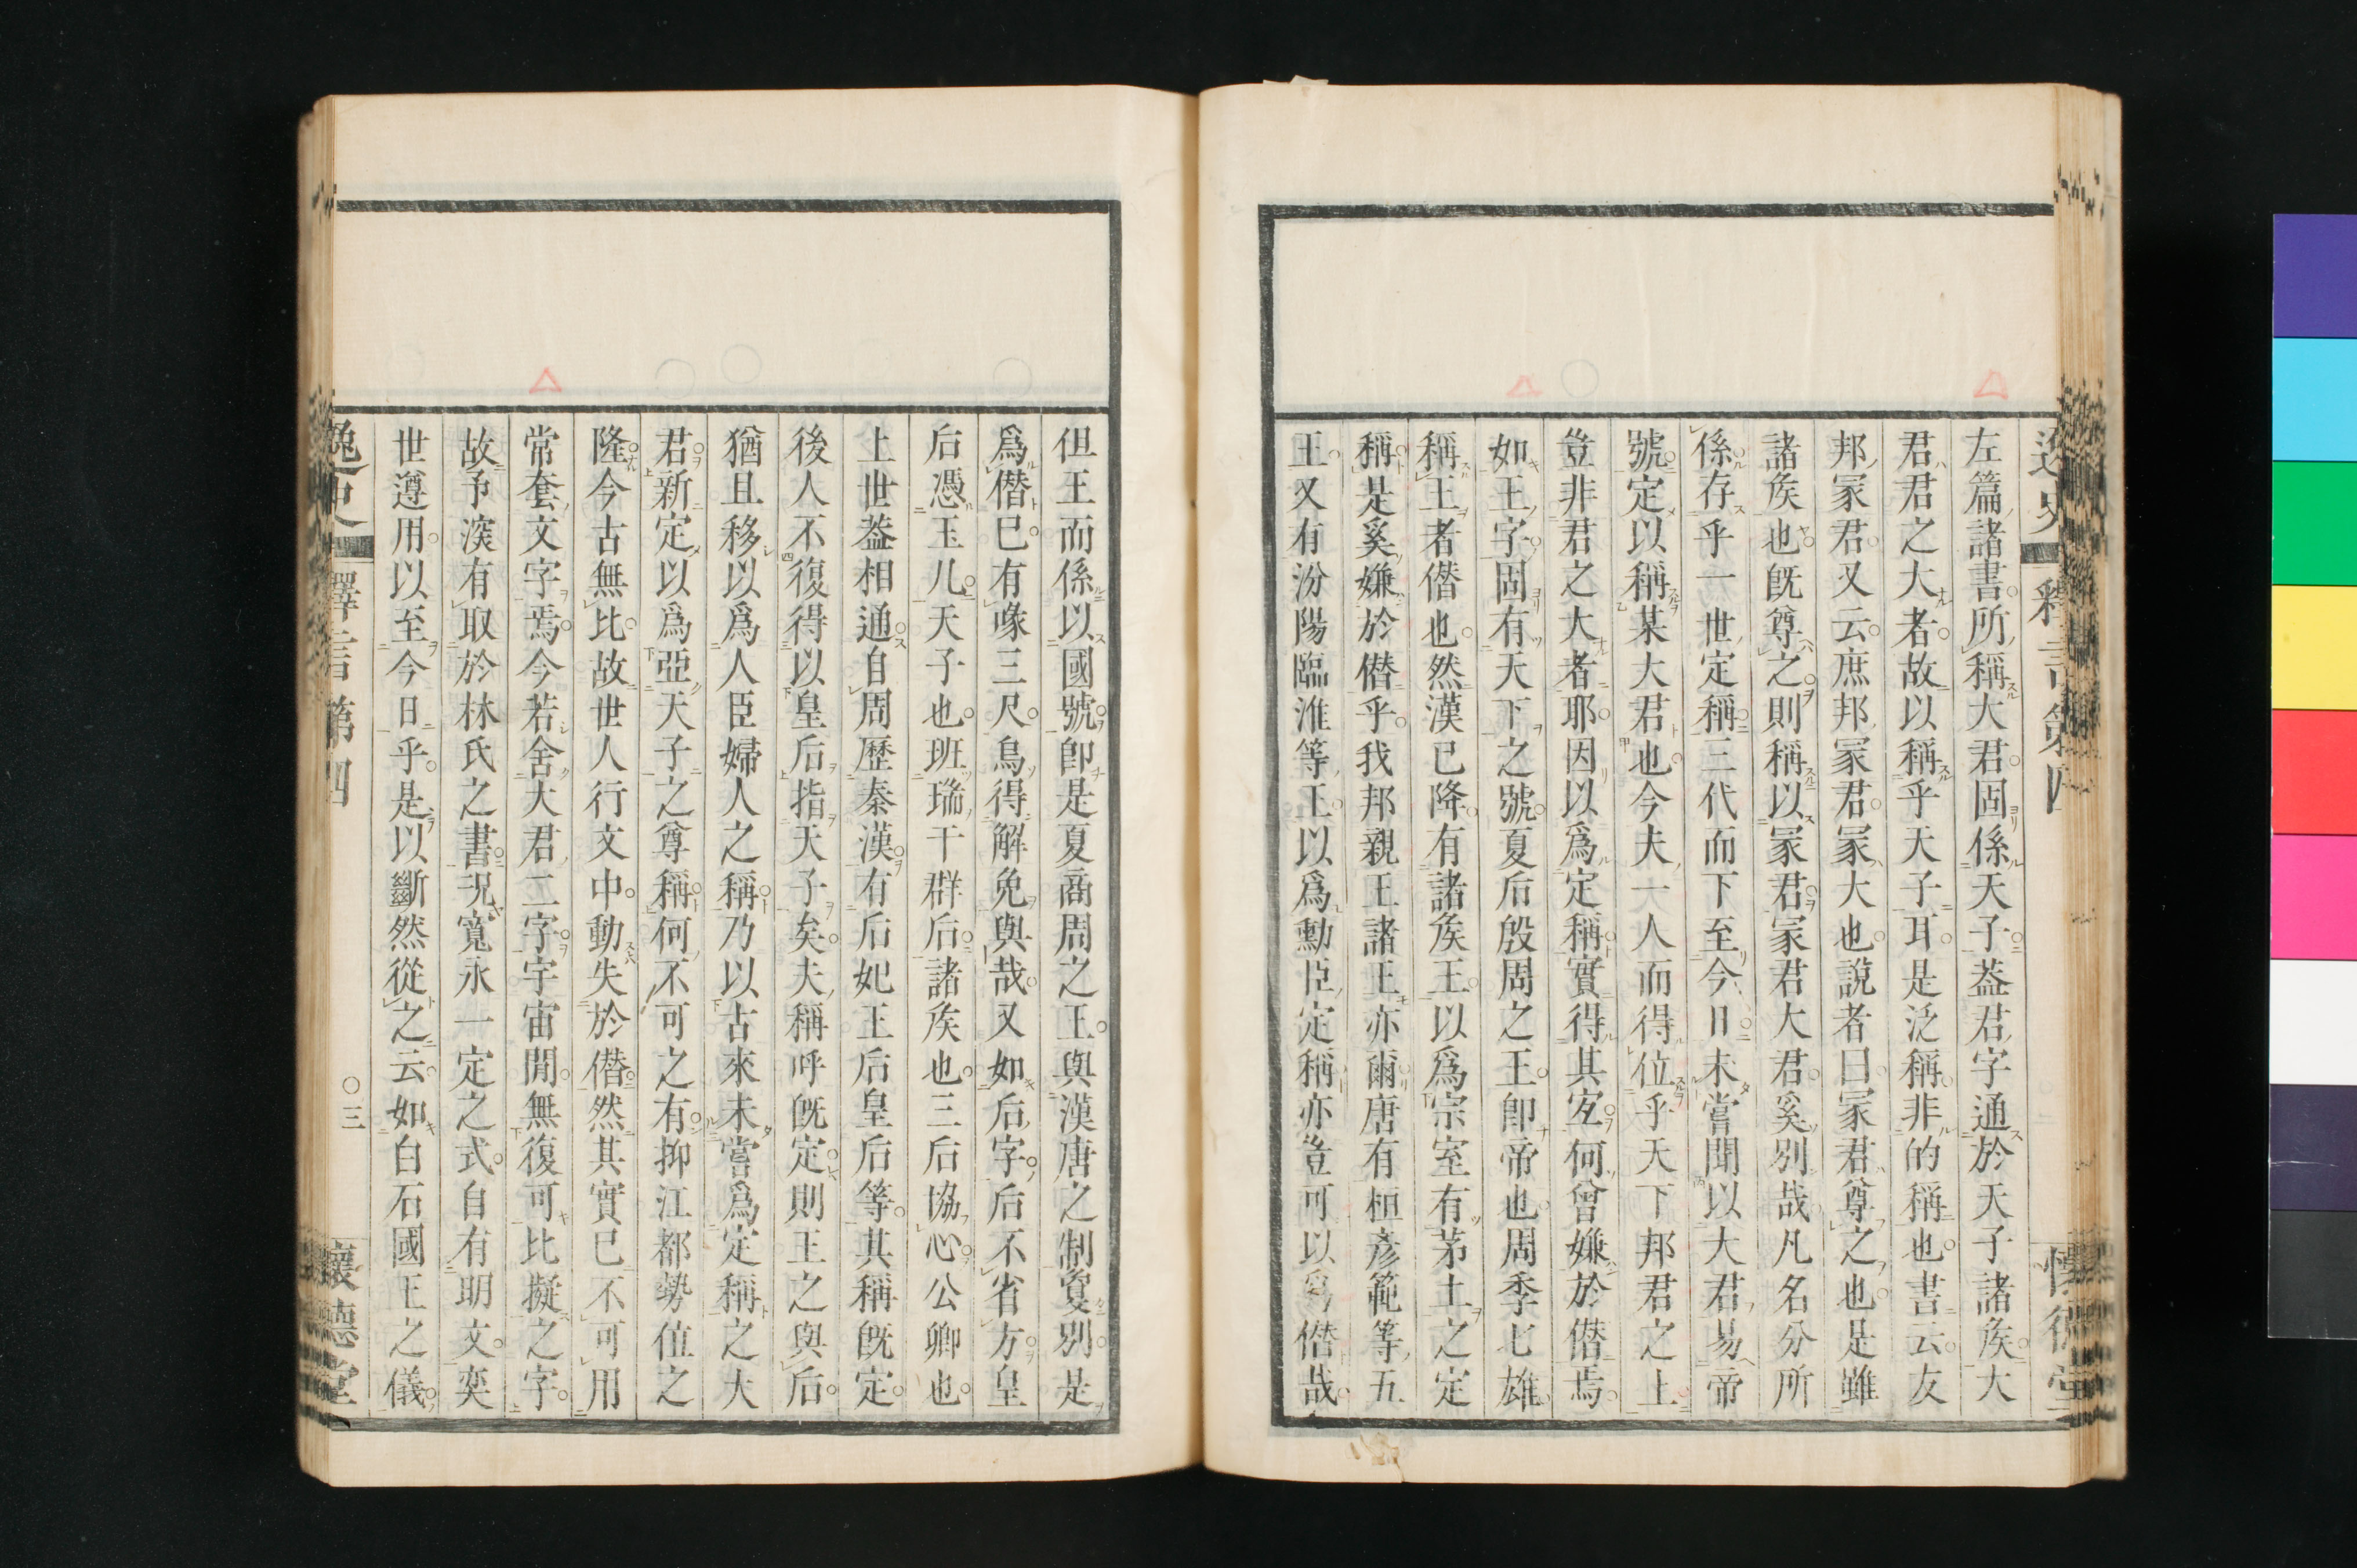 左篇諸書所稱大君固係天子蓋君字通於天子諸矦大
君君之大者故以稱乎天子耳是泛稱非的稱也書云友
邦冢君又云庶邦冢君冢大也說者曰冢君尊之也是雖
諸矦也旣尊之則稱以冢君冢君大君奚别哉凡名分所
係存乎一世定稱三代而下至今日未嘗聞以大君易帝
號定以稱某大君也今夫一人而得位乎天下邦君之上
豈非君之大者耶因以爲定稱實得其宐何曾嫌於僭焉
如王字固有天下之號夏后殷周之王卽帝也周季七雄
稱王者僭也然漢已降有諸矦王以爲宗室有茅土之定
稱是奚嫌於僭乎我邦親王諸王亦爾唐有桓彥範等五
王又有汾陽臨淮等王以爲勳臣定稱亦豈可以爲僭哉
但王而係以國號卽是夏商周之王與漢唐之制敻别是
爲僭已有喙三尺烏得解免與哉又如后字后不省方皇
后憑玉几天子也班瑞于群后諸矦也三后協心公卿也
上世蓋相通自周歷秦漢有后妃王后皇后等其稱旣定
後人不復得以皇后指天子矣夫稱呼旣定則王之與后
猶且移以爲人臣婦人之稱乃以古來未嘗爲定稱之大
君新定以爲亞天子之尊稱何不可之有抑江都勢值之
隆今古無比故世人行文中動失於僭然其實已不可用
常套文字焉今若舍大君二字宇宙閒無復可比擬之字
故予湥有取於林氏之書況寬永一定之式自有明文奕
世遵用以至今日乎是以斷然從之云如白石國王之儀
逸史
釋言第四
〇三
懷德堂